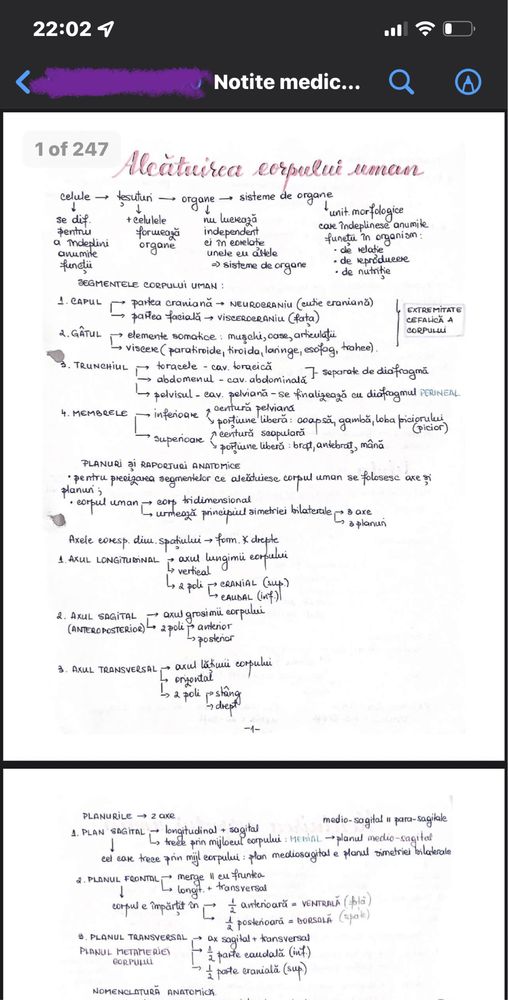 22:02
Notite medic...
1 of 247
Alcătuirea corpului uman
celule → țesuturi → organe → sisteme de organe
↓ ↓ ↓ ↓ unit. morfologice
se dif. + celulele nu lucrează care îndeplinesc anumite
pentru formează independent funcții în organism:
a îndeplini organe ci în corelație • de relație
anumite unele cu altele • de reproducere
funcții ⇒ sisteme de organe • de nutriție
SEGMENTELE CORPULUI UMAN:
1. CAPUL → partea craniană → NEUROCRANIU (cutie craniană)
→ partea facială → VISCEROCRANIU (fața)
EXTREMITATE
CEFALICĂ A
CORPULUI
2. GÂTUL → elemente somatice: mușchi, oase, articulații
→ viscere (paratiroide, tiroida, laringe, esofag, trahee).
3. TRUNCHIUL → toracele - cav. toracică
→ abdomenul - cav. abdominală
separate de diafragmă
→ pelvisul - cav. pelviană - se finalizează cu diafragmul PERINEAL
4. MEMBRELE → inferioare centură pelviană
porțiune liberă: coapsă, gambă, laba piciorului
(picior)
→ superioare centură scapulară
porțiune liberă: braț, antebraț, mână
PLANURI ȘI RAPORTURI ANATOMICE
• pentru precizarea segmentelor ce alcătuiesc corpul uman se folosesc axe și
planuri;
• corpul uman → corp tridimensional
→ urmează principiul simetriei bilaterale → 3 axe
→ 3 planuri
Axele coresp. dim. spațiului → form. ∢ drepte
1. AXUL LONGITUDINAL → axul lungimii corpului
→ vertical
→ 2 poli → CRANIAL (sup)
→ CAUDAL (inf.)
2. AXUL SAGITAL → axul grosimii corpului
(ANTEROPOSTERIOR) → 2 poli → anterior
→ posterior
3. AXUL TRANSVERSAL → axul lățimii corpului
→ orizontal
→ 2 poli → stâng
→ drept
-1-
PLANURILE → 2 axe medio-sagital || para-sagitale
1. PLAN SAGITAL → longitudinal + sagital
→ trece prin mijlocul corpului: MEDIAL → planul medio-sagital
cel care trece prin mijl corpului: plan mediosagital e planul simetriei bilaterale
2. PLANUL FRONTAL → merge || cu fruntea
→ longit. + transversal
corpul e împărțit în → 1/2 anterioară = VENTRALĂ
→ 1/2 posterioară = DORSALĂ (spate)
3. PLANUL TRANSVERSAL → ax sagital + transversal
PLANUL METAMERIEI → 1/2 parte caudală (inf.)
CORPULUI → 1/2 parte cranială (sup)
NOMENCLATURĂ ANATOMICĂ